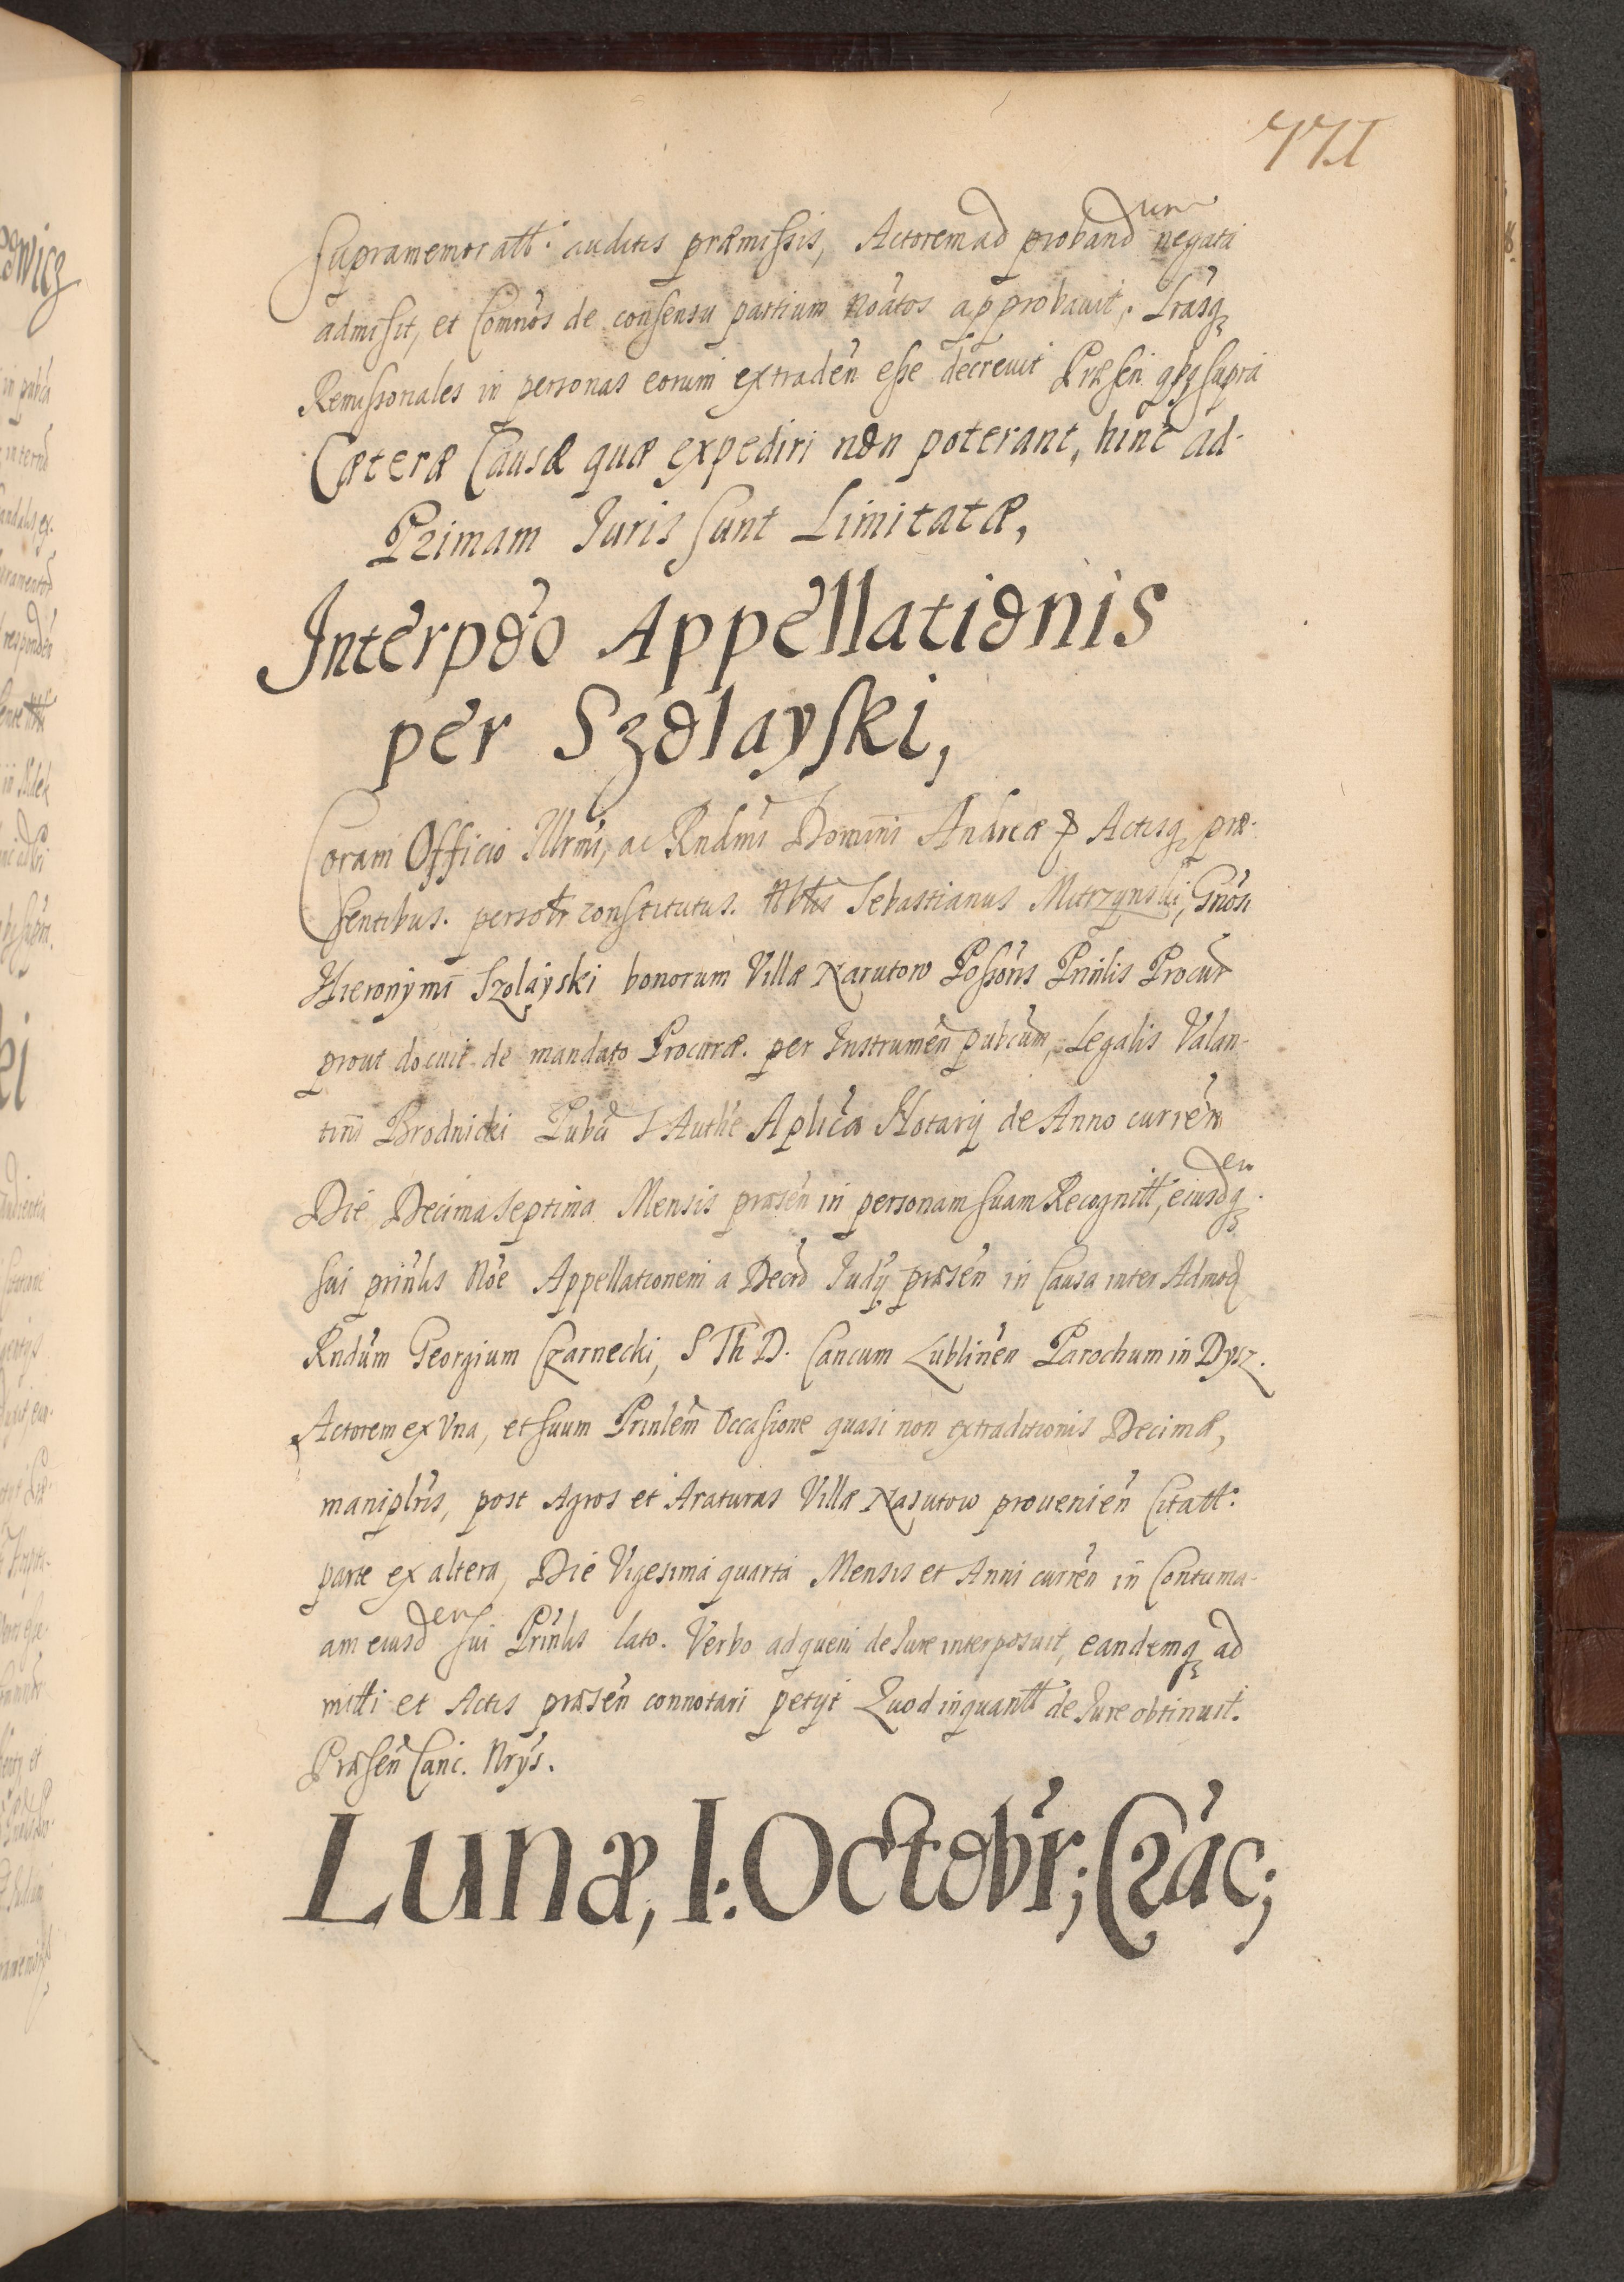 771
Supramemoratt: auditis præmissis, Actorem ad proband um negata
admisit, et Comnos de consensu partium noatos approbauit, Lrasq
Remissoriales in personas eorum extraden esse decreuit Præsen qbq supra
Cæteræ Causæ quæ expediri non poterant, hinc ad-
Primam Iuris sunt Limitatæ,
Interpoo Appellationis
per Szolayski,
Coram Officio Illrmi, ac Rndmi Domini Andreæ Actisq præ-
sentibus. personr constitutus. Nblis Sebastianus Gnosi
Hieronymi Szolayski bonorum Villæ Narutow Possoris Prinlis Procur
prout docuit de mandato Procuræ. per Instrumen pubcum, Legalis Valan-
tini Brodnicki Pubci S Authe Aplica Notarij de Anno curren
Die Decima septima Mensis præsen in personam suam Recognitt, eiusd en q.
sui prinlis Noe Appellationem a Decro Judij præsen in Causa inter Admod
Rndum Georgium Czarnecki, S Th D. Cancum Lublinen Parochum in Dysz.
Actorem ex Vna, et suum Prinlem Occasione quasi non extraditionis Decimæ,
maniplris, post Agros et Araturas Villæ Nasutow prouenien Citatt:
parte ex altera, Die Vigesima quarta Mensis et Anni curren in Contuma-
am eiusd en sui Prinlis lato. Verbo ad quem de Iure interposuit, eandemq ad
mitti et Actis præsen connotari petyt Quod inquantt de Iure obtinuit.
Præsen Canc. Nrys.
Lunæ, I: Octobr; Crac;